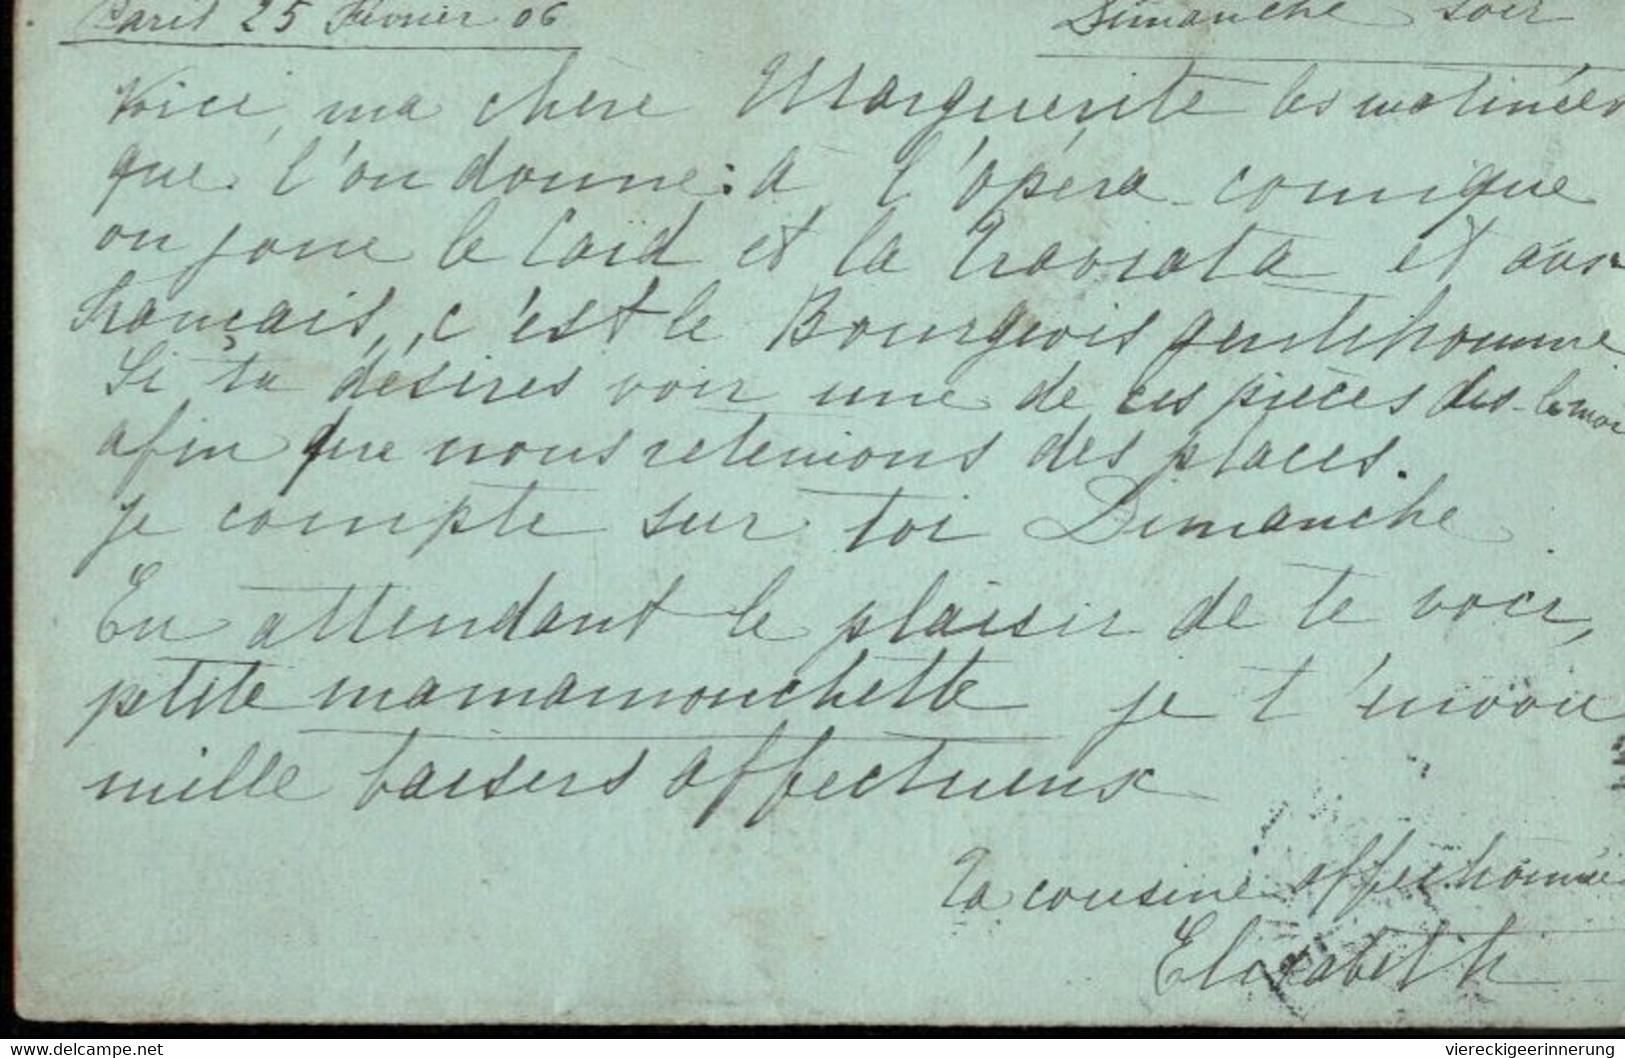 Paris 25 Février 06
Dimanche soir
Voici, ma chère Marguerite les matinées
que l'on donne: à l'opéra-comique
on joue le Caïd et la Traviata et aux
Français, c'est le Bourgeois gentilhomme
Si tu désires voir une de ces pièces dis-le moi
afin que nous retenions des places.
je compte sur toi Dimanche
En attendant le plaisir de te voir,
petite mamamouchette je t'envoie
mille baisers affectueux
Ta cousine affectionnée
Elisabeth
www.delcampe.net
viereckigeerinnerung